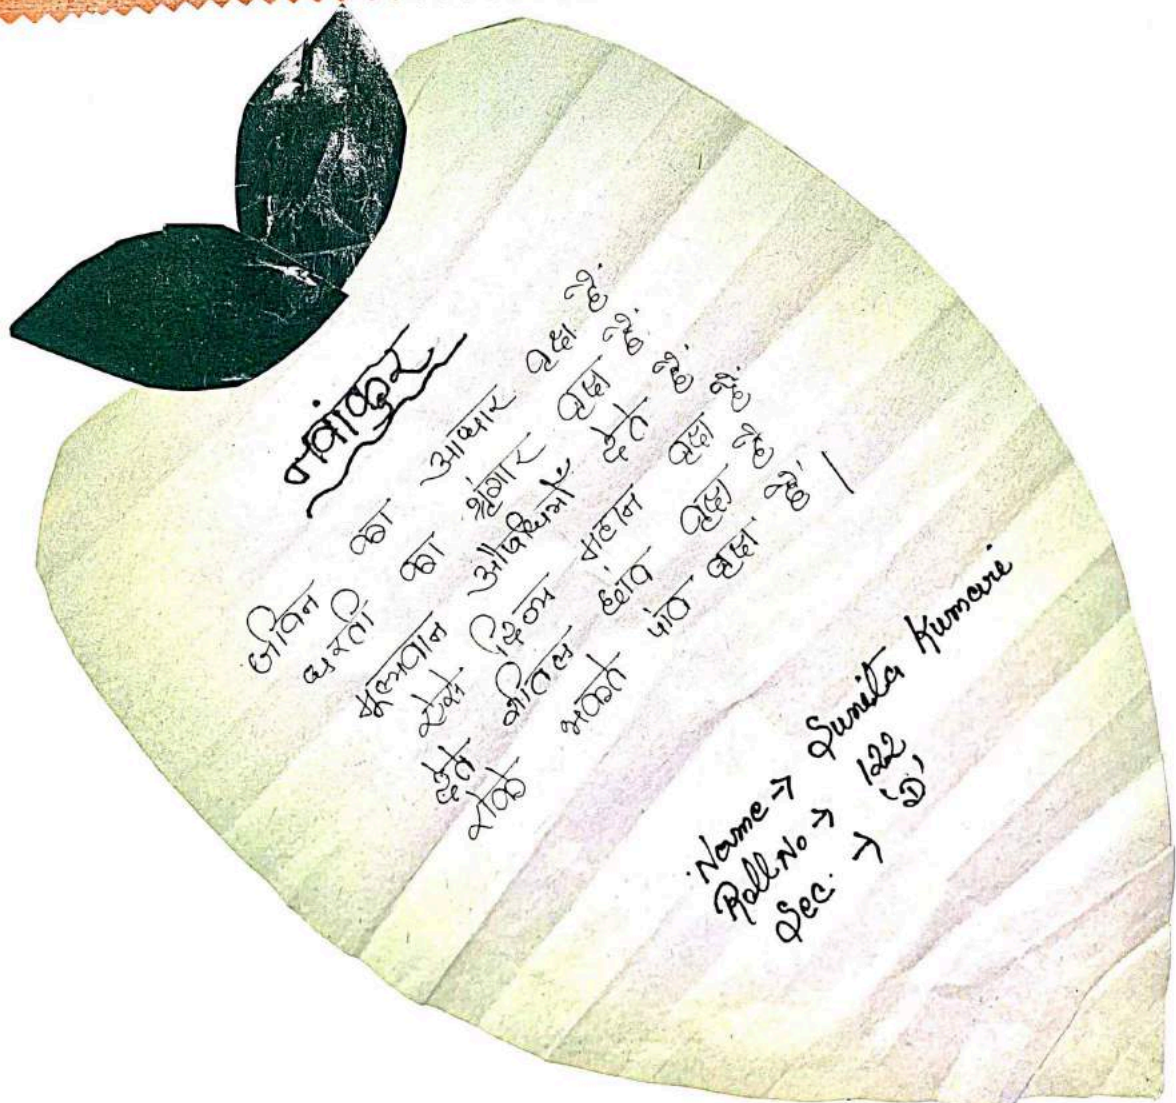 नवांकुर
जीवन का आधार वृक्ष हैं
धरती का श्रृंगार वृक्ष हैं
मूल्यवान औषधियाँ देते हैं
ऐसे दिव्य महान वृक्ष हैं
देते शीतल छाँव वृक्ष हैं
रोके थकते पांव वृक्ष हैं।
Name → Sunita Kumari
Roll.No → 122
Sec. → 'D'